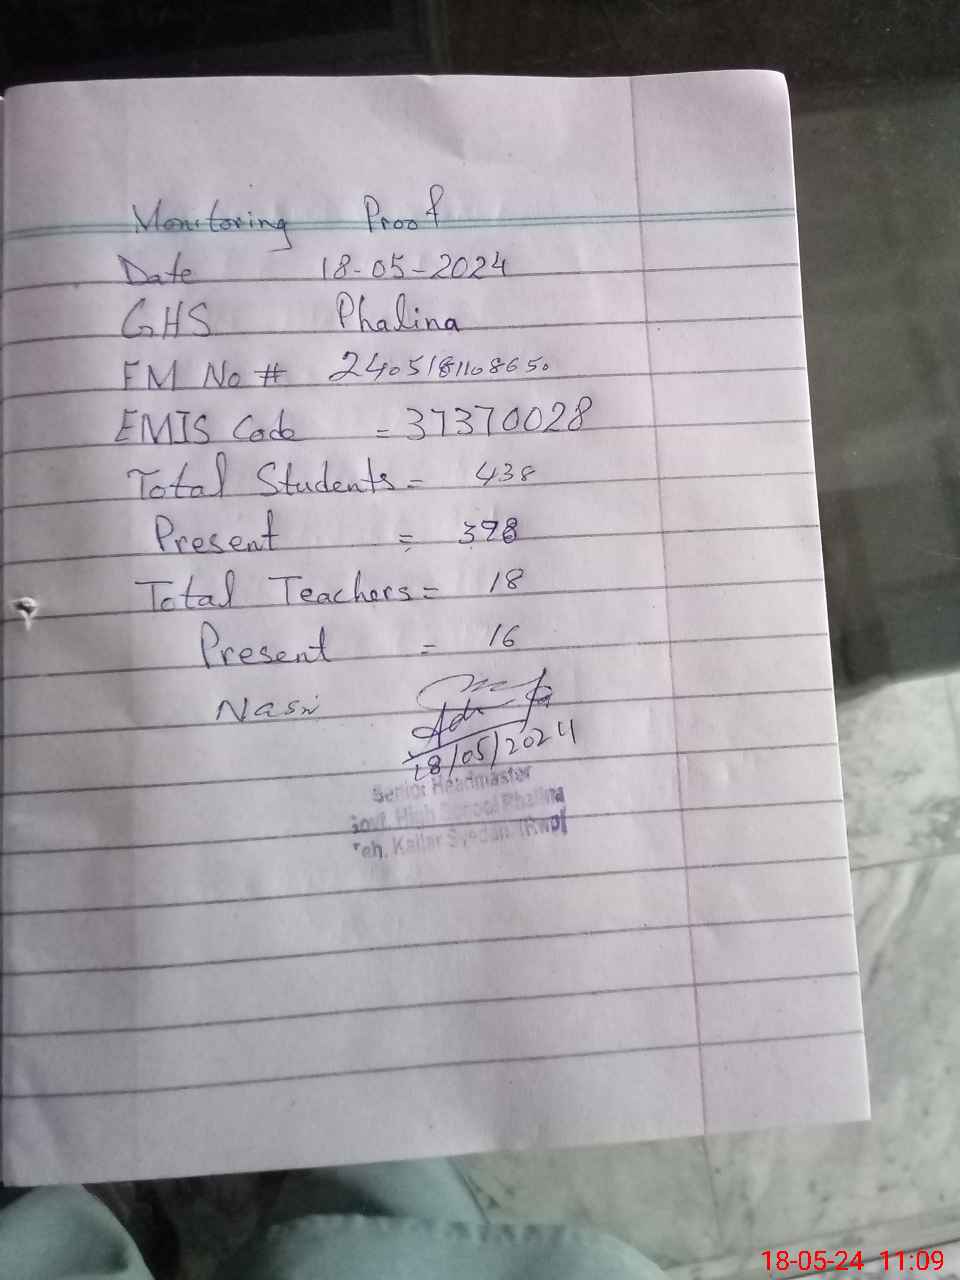 Monitoring Proof
Date 18-05-2024
GHS Phalina
FM No # 2405181108650
EMIS Code = 37370028
Total Students = 438
Present = 398
Total Teachers = 18
Present = 16
18/05/2024
Senior Headmaster
Govt. High School Phalina
Teh. Kallar Syedan (Rwp)
18-05-24 11:09